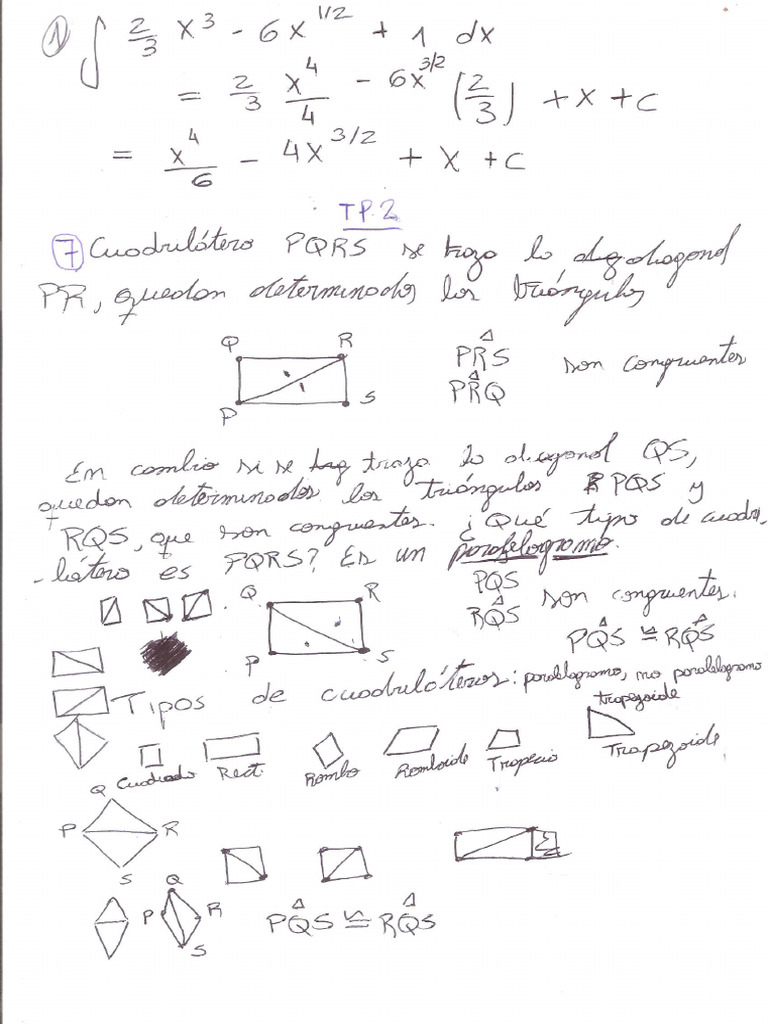 1) ∫ 2/3 x³ - 6x^1/2 + 1 dx
= 2/3 x⁴/4 - 6x^3/2 (2/3) + x + c
= x⁴/6 - 4x^3/2 + x + c
T.P.2
7 Cuadrilátero PQRS se traza la diagonal
PR, quedan determinados los triángulos
Q R
PRS son congruentes
PRQ
P S
En cambio si se traza la diagonal QS,
quedan determinados los triángulos PQS y
RQS, que son congruentes. ¿Qué tipo de cuadri
-látero es PQRS? Es un paralelogramo.
Q R
PQS
RQS son congruentes.
PQS ≅ RQS
P S
Tipos de cuadriláteros: paralelogramo, no paralelogramo
trapezoide
Cuadrado Rect. Rombo Romboide Trapecio Trapezoide
Q
P R
S
Q
P R
S
PQS ≅ RQS